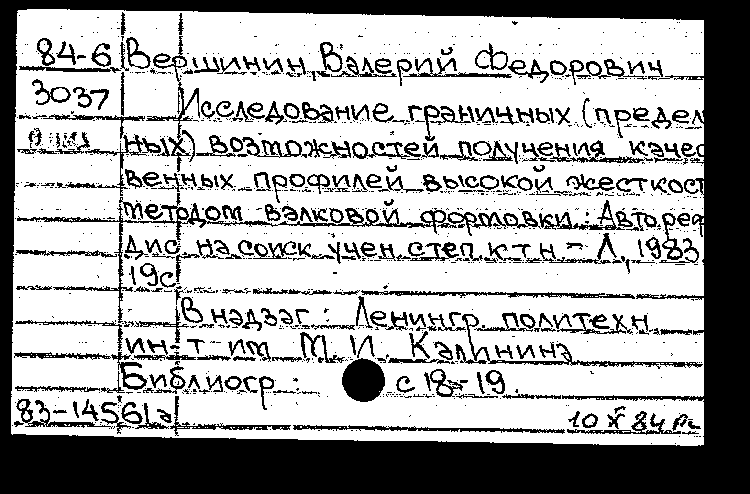 84-6 Вершинин, Валерий Федорович
3037 Исследование граничных (предел
ных) возможностей получения качес
венных профилей высокой жесткост
методом валковой формовки: Автореф
дис. на соиск. учен. степ. к т н - Л., 1983.
19с
В надзаг: Ленингр. политехн
ин-т им М. И. Калинина
Библиогр: с 18-19.
83-14561а 10 X 84